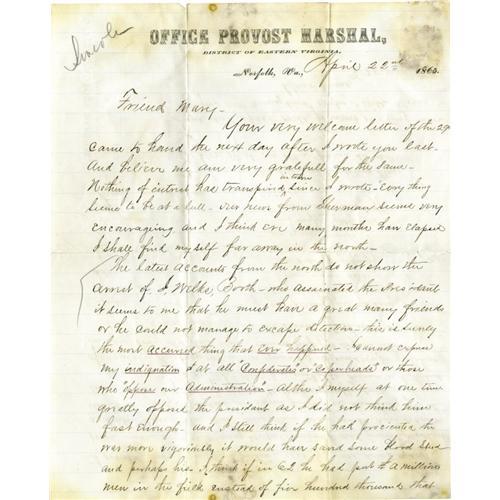 Lincoln
OFFICE PROVOST MARSHAL,
DISTRICT OF EASTERN VIRGINIA,
Norfolk, Va., April 22nd 1865.
Friend Mary -
Your very welcome letter of the
came to hand the next day after I wrote you last -
And believe me am very gratefull for the same -
Nothing of interest has transpired since I wrote - Evry thing
seems to be at a lull - our news from Sherman seems very
encouraging and I think ere many months have elapsed
I shall find myself far away in the north -
The latest accounts from the north do not show the
arrest of J Wilks, Booth - who assasinated the President
it seems to me that he must have a great many friends
or he could not manage to escape detection - this is surely
the most accursed thing that ever happened - I cannot express
my indignation at all "Confederates" or "Copperheads" or those
who "oppose our Administration" - Altho I myself at one time
greatly opposed the president as I did not think him
fast enough - and I still think if he had procecuted the
war more vigorously it would have saved some blood shed
and perhaps his. I think if in 62 he had put a million
men in the field instead of five hundred thousand that